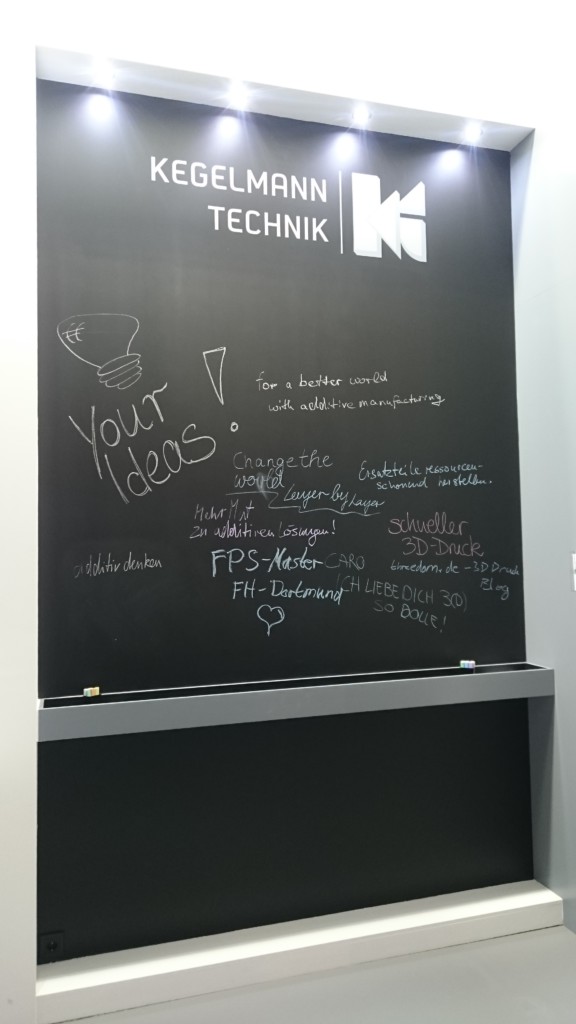 KEGELMANN
TECHNIK
Your
Ideas!
for a better world
with additive manufacturing
Change the
world
Layer by Layer
Ersatzteile ressourcen-
schonend herstellen.
Mehr Mut
zu additiven Lösungen!
schneller
3D-Druck
additiv denken
FPS-Master
FH-Dortmund
CARO
ICH LIEBE DICH 3(D)
SO DOLLE!
threedom.de - 3D Druck
Blog